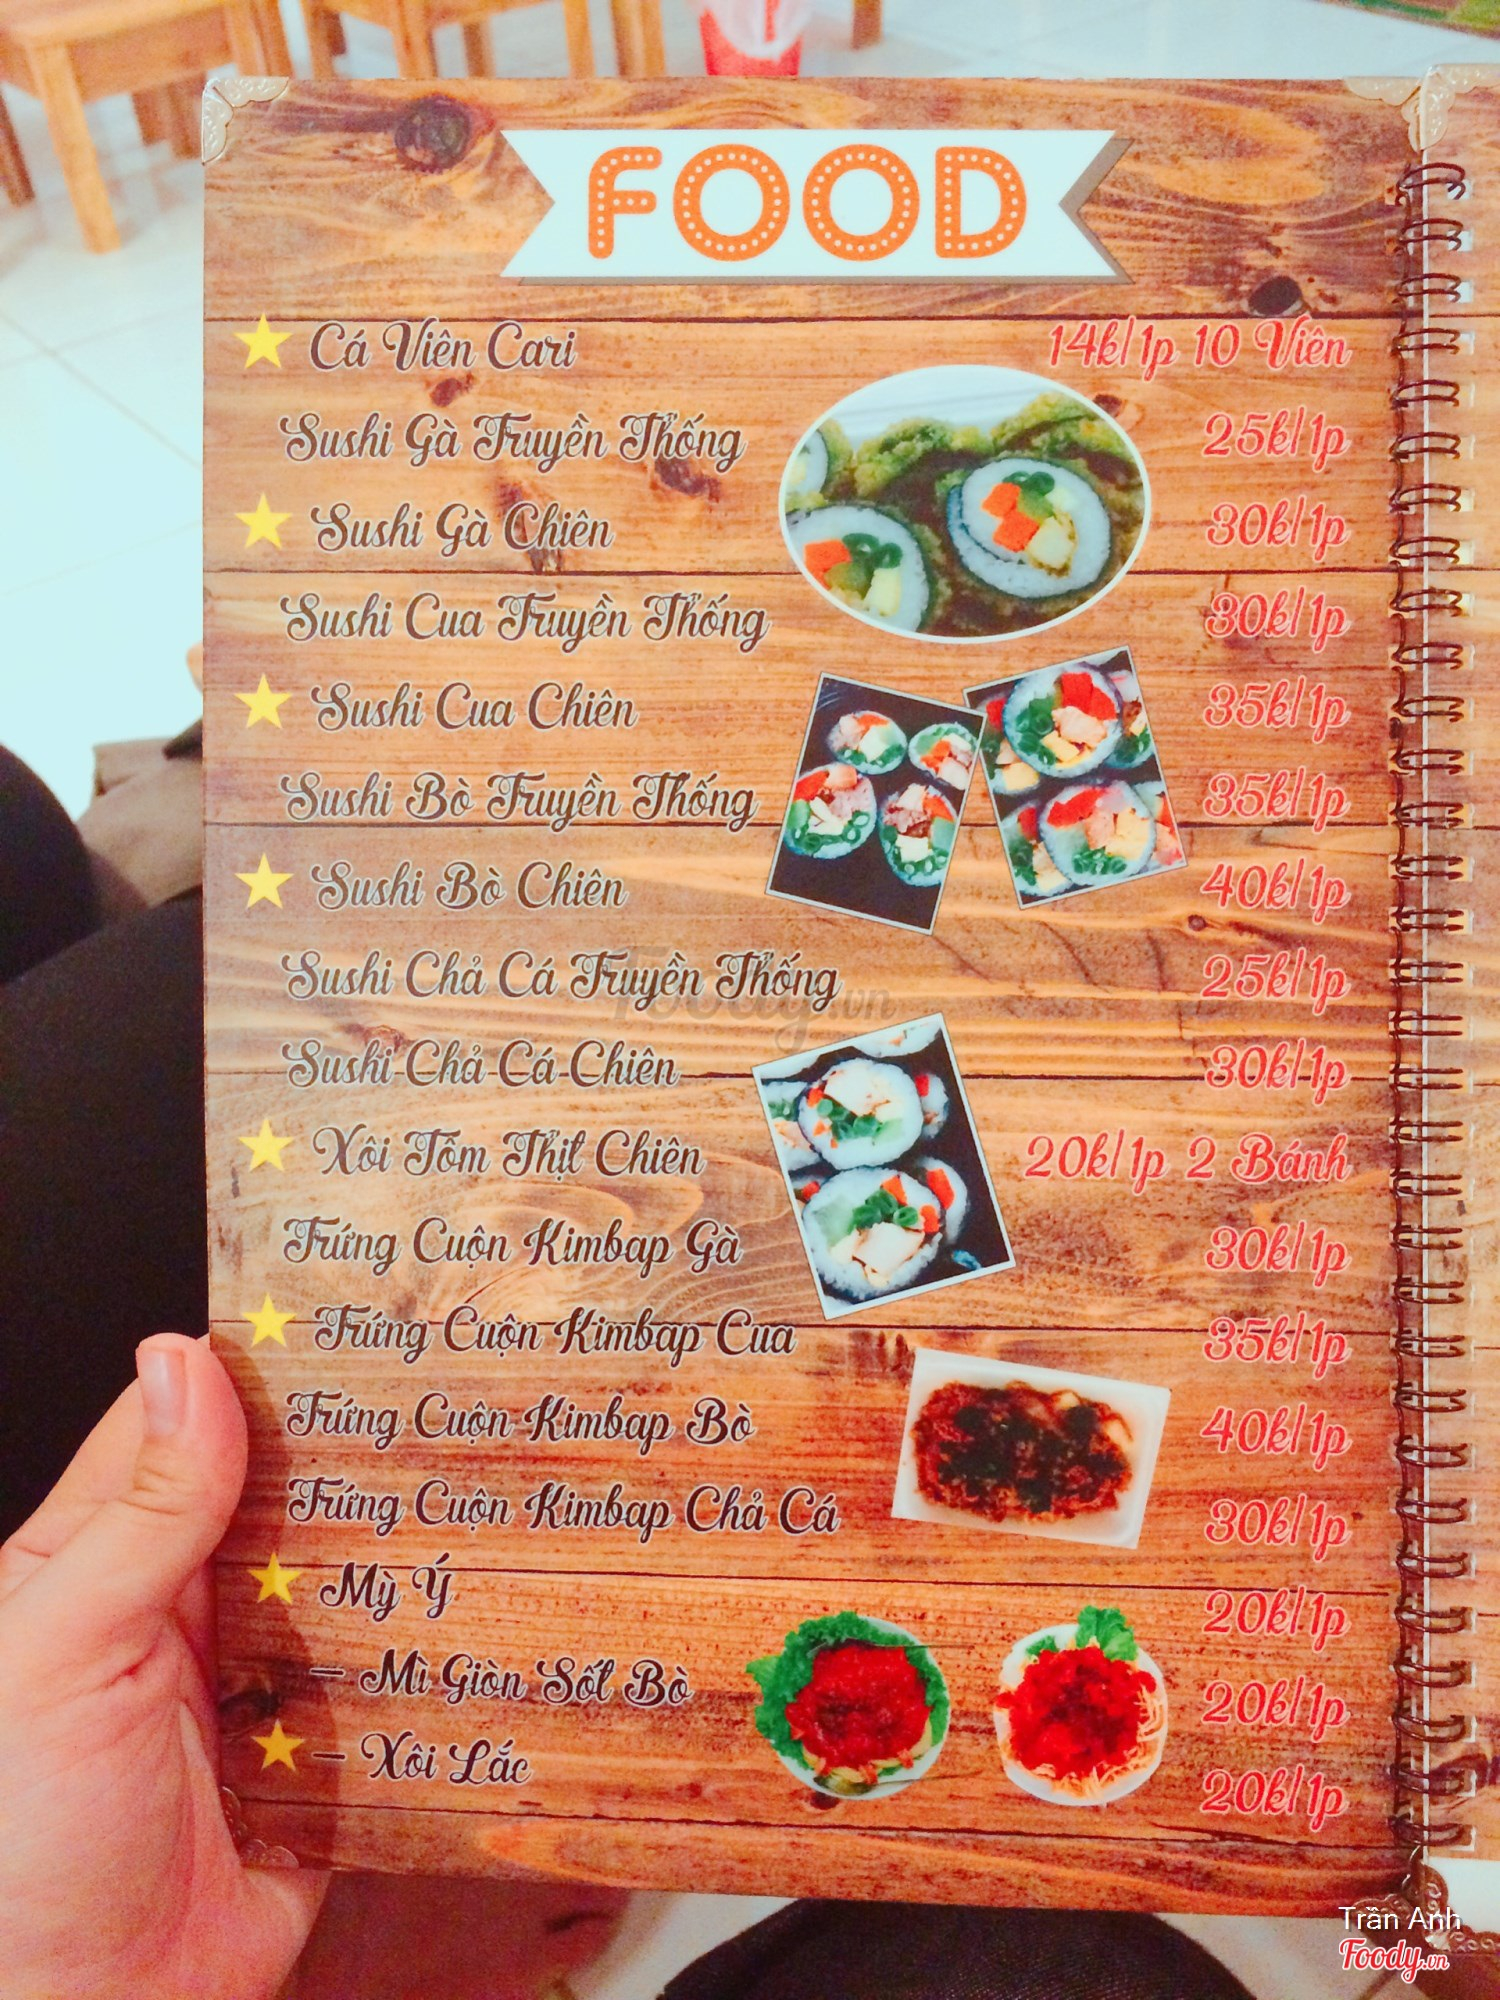 FOOD
Cá Viên Cari 14k/1p 10 Viên
Sushi Gà Truyền Thống 25k/1p
Sushi Gà Chiên 30k/1p
Sushi Cua Truyền Thống 30k/1p
Sushi Cua Chiên 35k/1p
Sushi Bò Truyền Thống 35k/1p
Sushi Bò Chiên 40k/1p
Sushi Chả Cá Truyền Thống 25k/1p
Foody.vn
Sushi Chả Cá Chiên 30k/1p
Xôi Tôm Thịt Chiên 20k/1p 2 Bánh
Trứng Cuộn Kimbap Gà 30k/1p
Trứng Cuộn Kimbap Cua 35k/1p
Trứng Cuộn Kimbap Bò 40k/1p
Trứng Cuộn Kimbap Chả Cá 30k/1p
Mỳ Ý 20k/1p
- Mì Giòn Sốt Bò 20k/1p
- Xôi Lắc 20k/1p
Trần Anh
Foody.vn